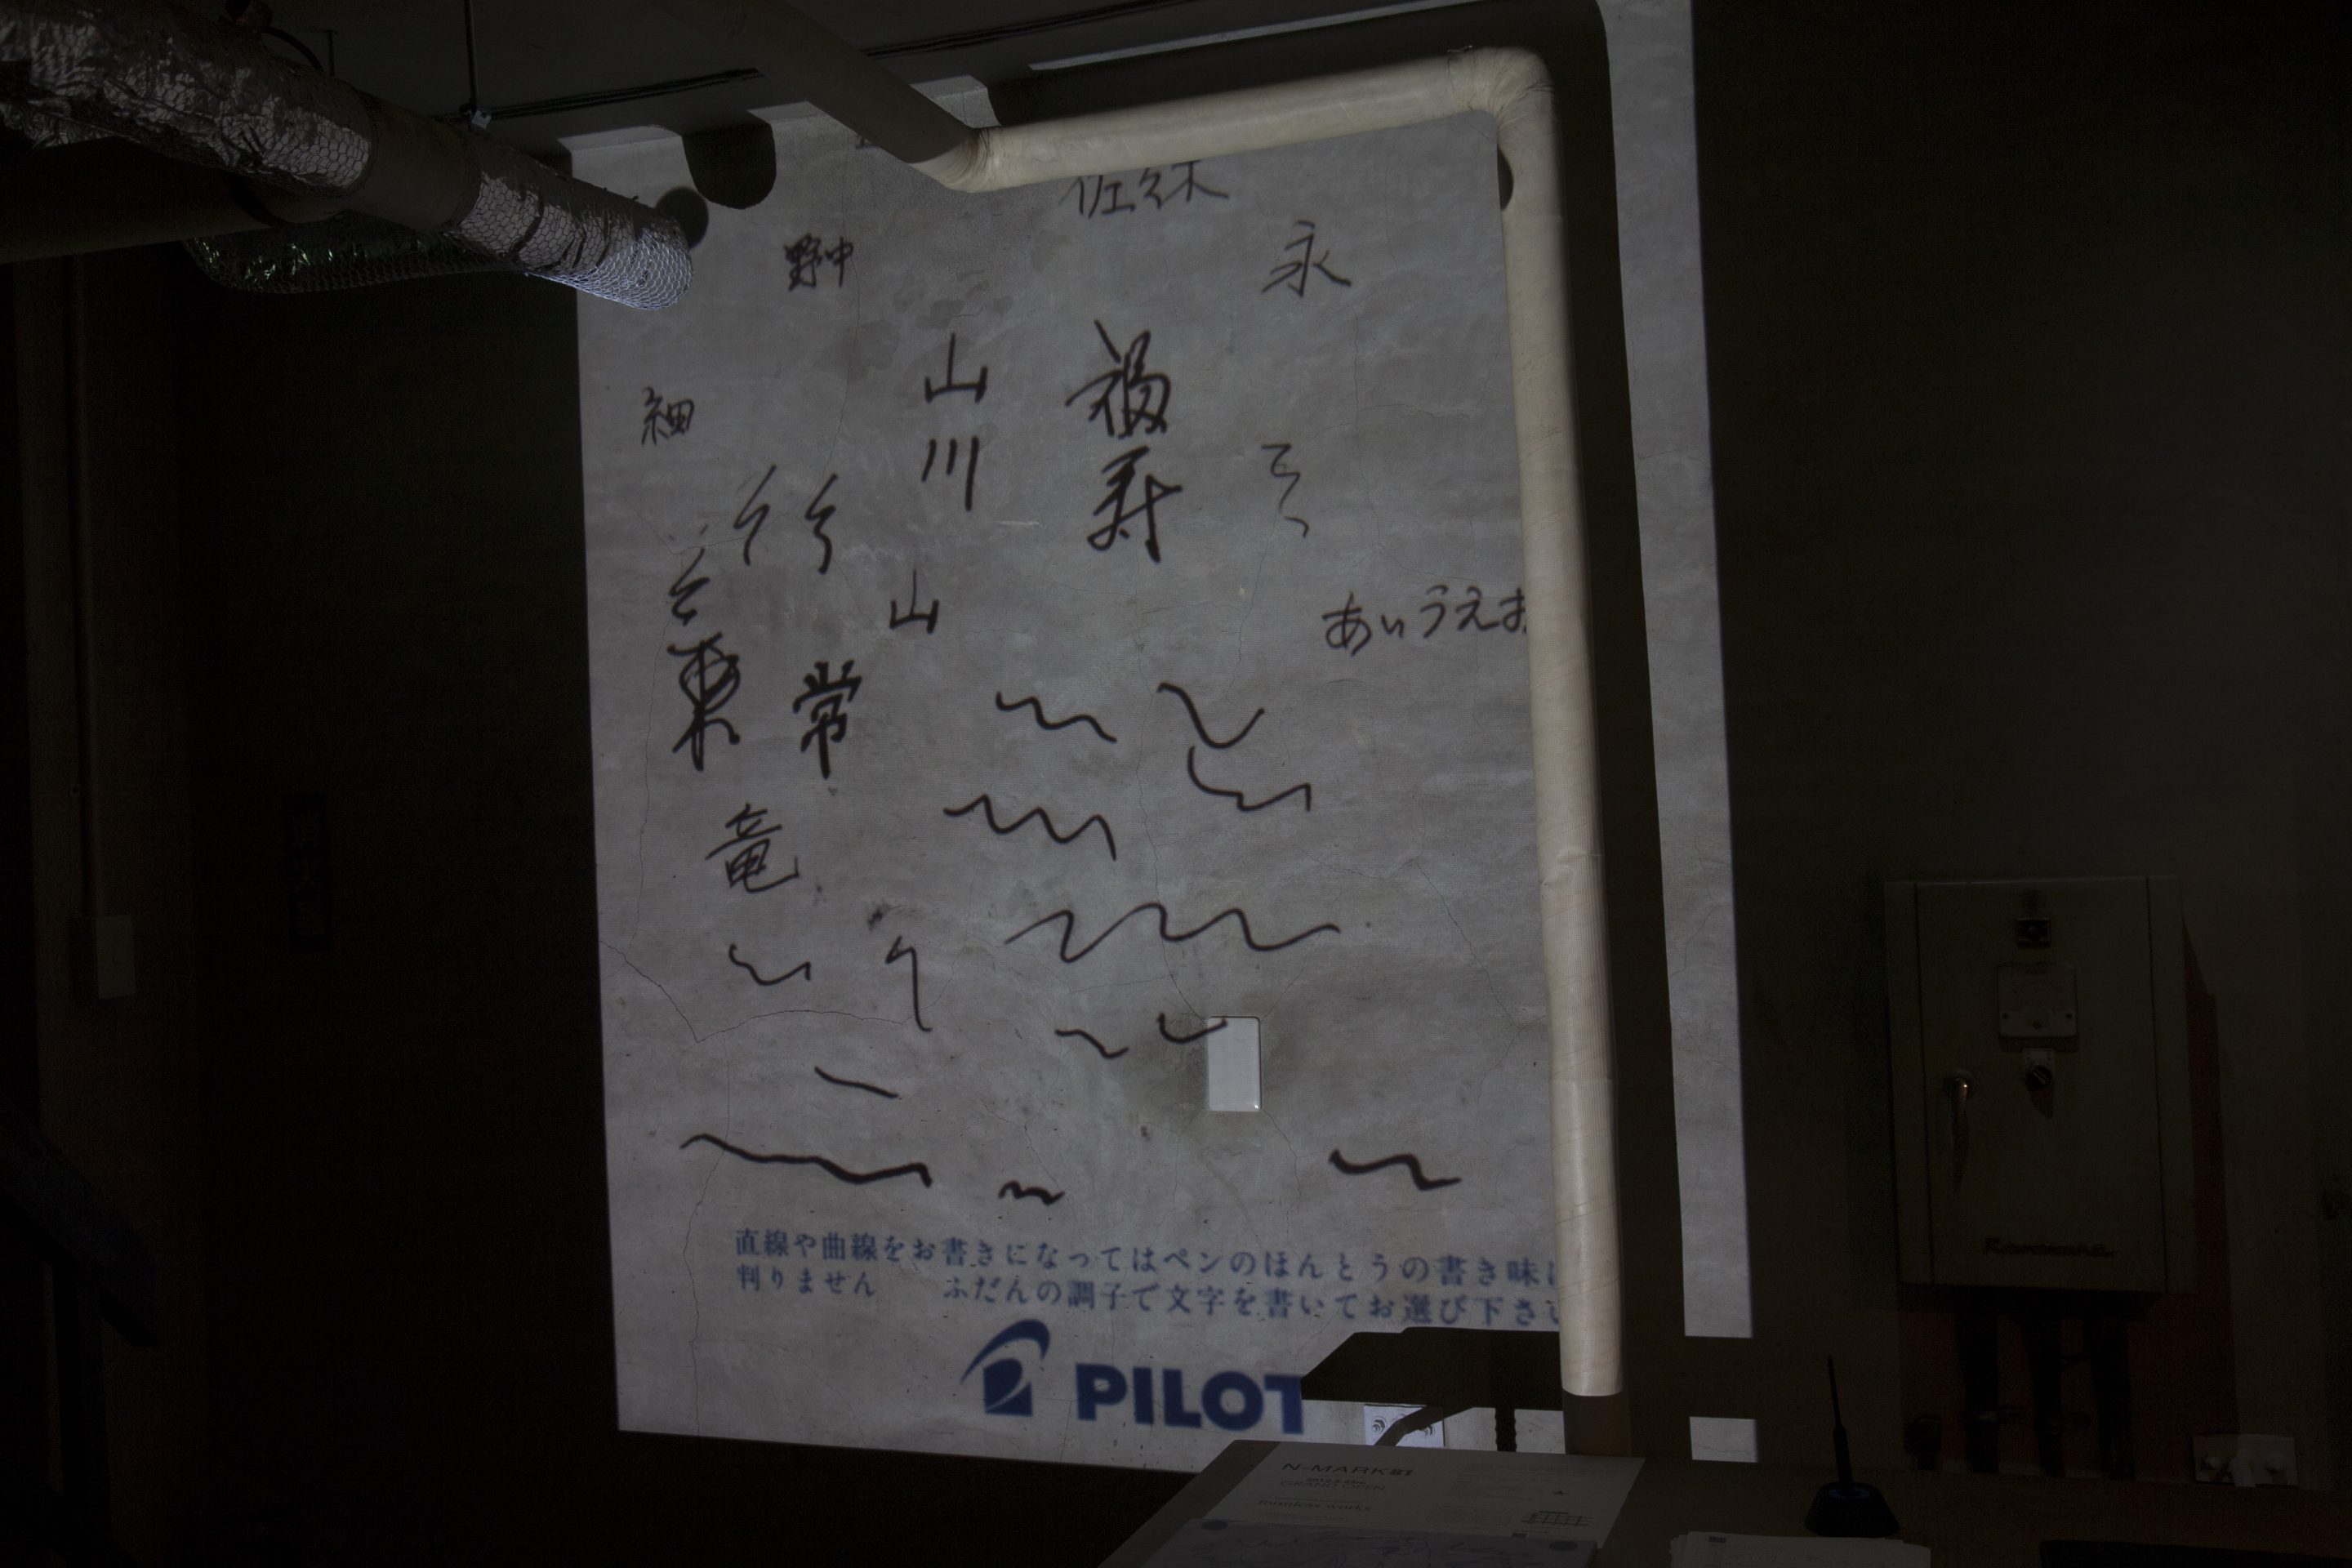 佐々木
永
野中
山川
福寿
細
あいうえお
山
東
常
竜
直線や曲線をお書きになってはペンのほんとうの書き味に
判りません　ふだんの調子で文字を書いてお選び下さい
PILOT
N-MARK B1
formless works
Kawamura